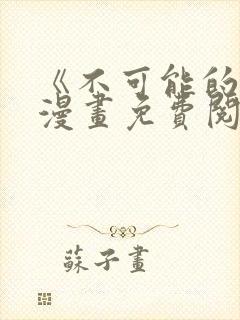 《不可能的
漫畫免費閱
蘇子畫